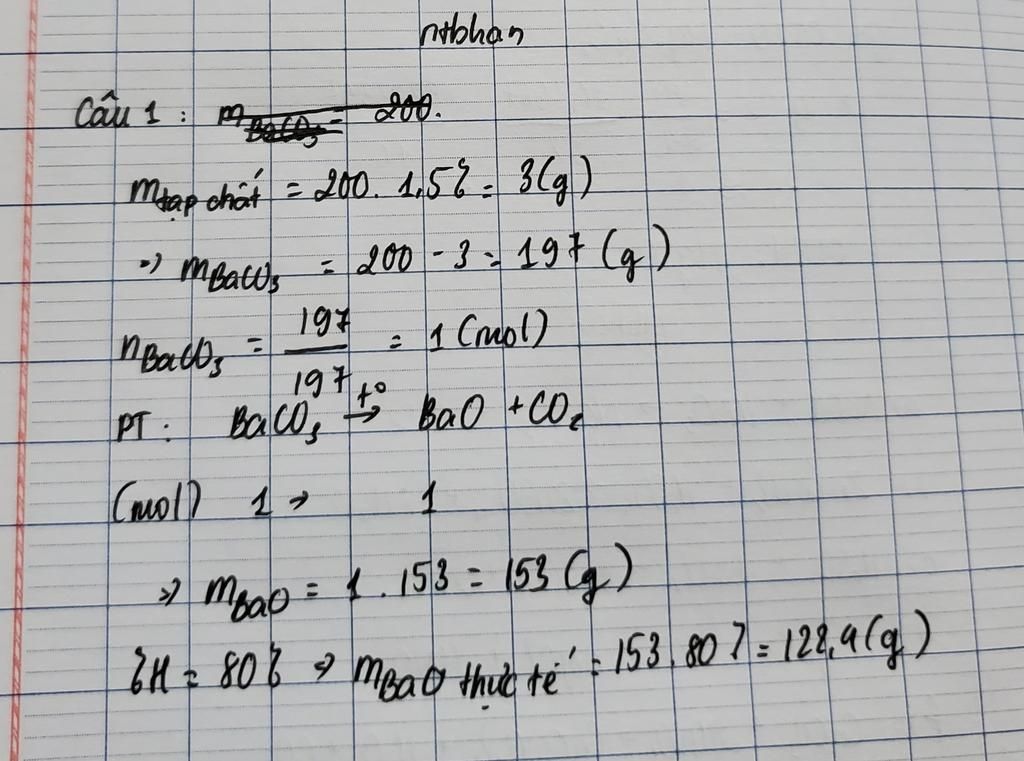 ntbhan
Câu 1 : m BaCO3 = 200.
m tạp chất = 200. 1,5% = 3(g)
=> m BaCO3 = 200 - 3 = 197 (g)
n BaCO3 = 197/197 = 1 (mol)
PT: BaCO3 t° → BaO + CO2
(mol) 1 → 1
=> m BaO = 1 . 153 = 153 (g)
%H = 80% => m BaO thực tế = 153. 80% = 122,4(g)